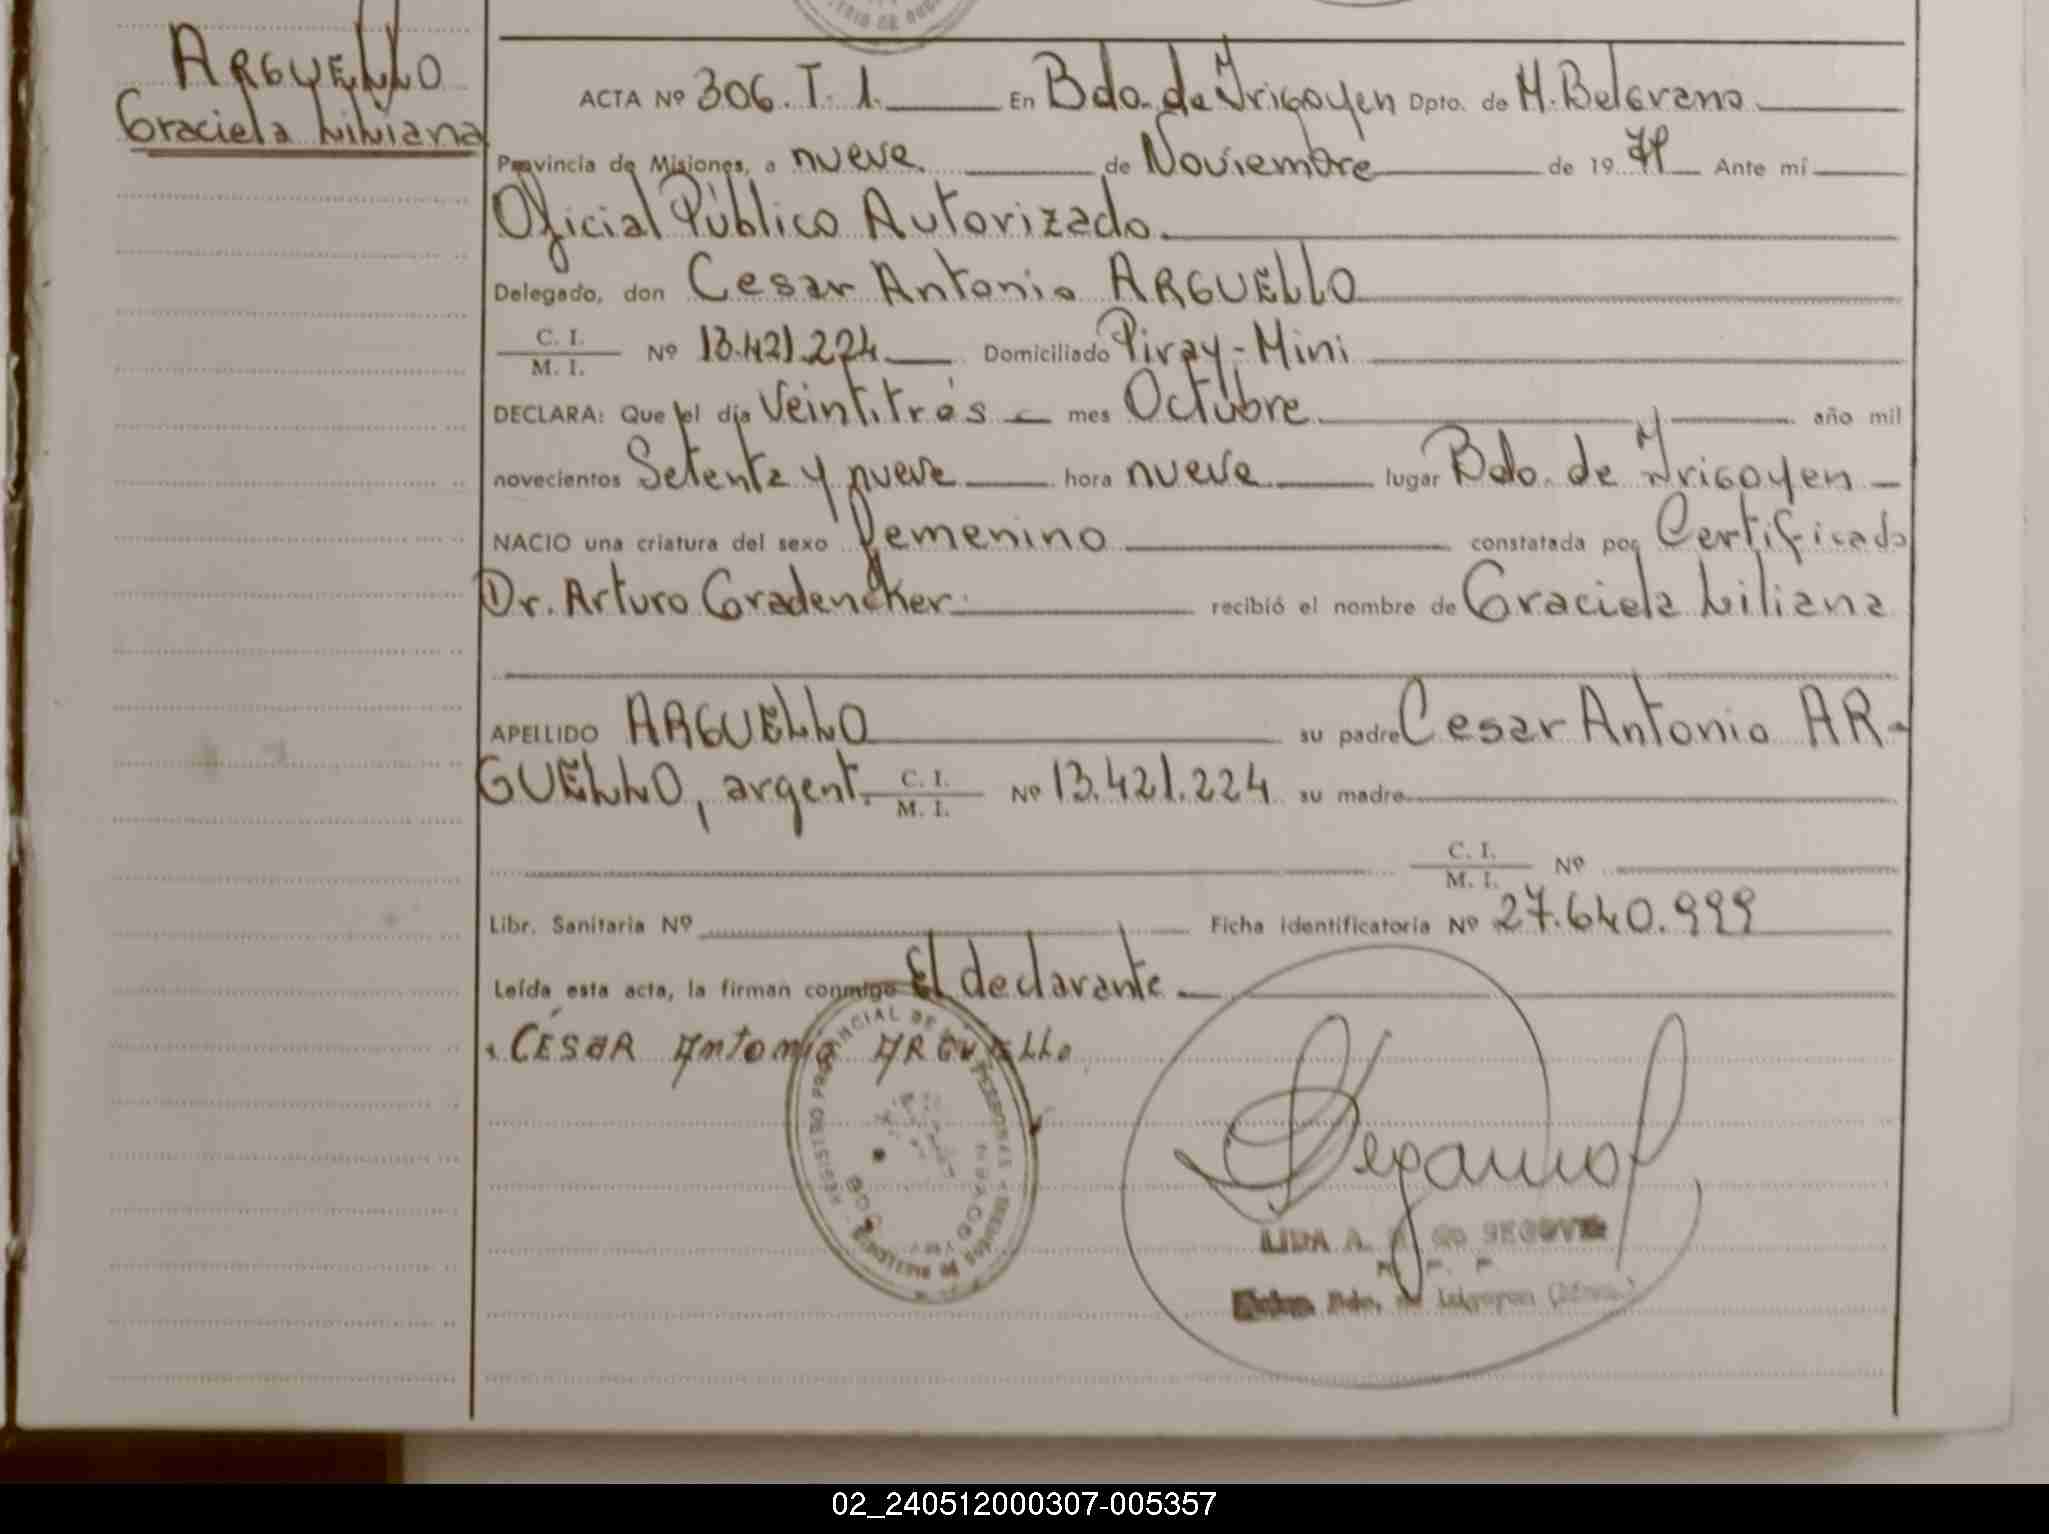 ARGUELLO
Graciela Liliana
ACTA Nº 306. T. 1. En Bdo. de Yrigoyen Dpto. de M. Belgrano
Provincia de Misiones, a nueve de Noviembre de 1979 Ante mí
Oficial Público Autorizado.
Delegado, don Cesar Antonio ARGUELLO
C. I.
M. I. Nº 13.421.224 Domiciliado Piray-Mini
DECLARA: Que el día Veintitrés mes Octubre año mil
novecientos Setenta y nueve hora nueve lugar Bdo. de Yrigoyen
NACIO una criatura del sexo femenino constatada por Certificado
Dr. Arturo Gradencker recibió el nombre de Graciela Liliana
APELLIDO ARGUELLO su padre Cesar Antonio AR-
GUELLO, argent. C. I. M. I. Nº 13.421.224 su madre
C. I. M. I. Nº
Libr. Sanitaria Nº Ficha identificatoria Nº 27.640.999
Leída esta acta, la firman conmigo El declarante
CÉSAR Antonio ARGUELLO
REGISTRO PROVINCIAL DE LAS PERSONAS
LIDA A. de SEGOVIA
02_240512000307-005357